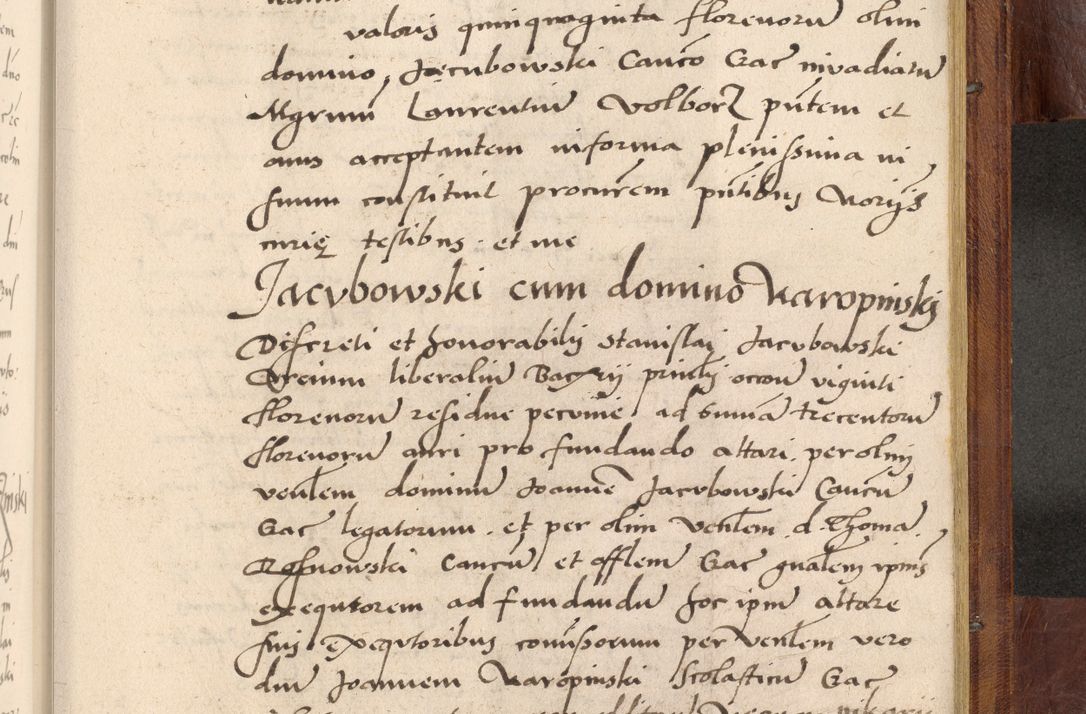 valoris quinquaginta florenorū olim
domino Jacubowski Canco Grac invadiatū
Mgrum Laurentiū Volborz pntem et
onus acceptantem in forma plenissima in
suum constituit procurem pntibus Norijs
curię testibus et me
Jacubowski cum domino Naropinskj
Discreti et honorabilis Stanislaj Jacubowski
Arcium liberaliū Baccrij princlis occōne viginti
florenorū residue pecunie ad sumā trecentorū
florenorū auri pro fundando altari per olim
venlem dominū Joannē Jacubowski Cancū
Grac legatorum et per olim venlem d Thomā
Rosnowski Cancū et offlem Grac gnalem ipius
exequtorem ad fundandū hoc ipm altare
suis exequtoribus comissorum per venlem vero
dnū Joannem Naropinski Scolasticū Grac